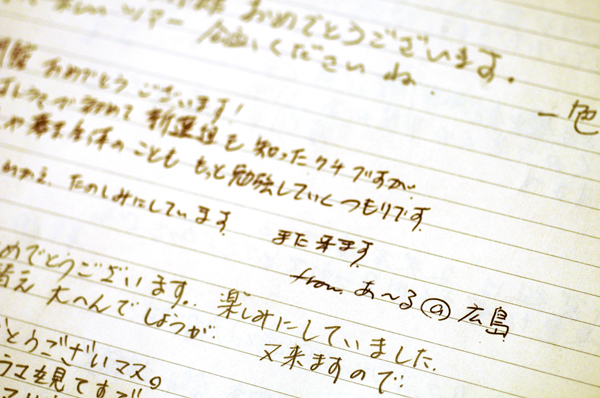 おめでとうございます。
しいツアー 企画ください ね.
一色
開館 おめでとう ございます!
ドラマで 初めて 新選組も 知ったクチですが、
幕末全体の ことも もっと勉強していくつもりです.
たのしみにしています また来ます
from あ〜る@広島
めでとうございます。 楽しみにしていました.
大へんでしょうが. 又来ますので
とうございマス。
ラマを見てすで